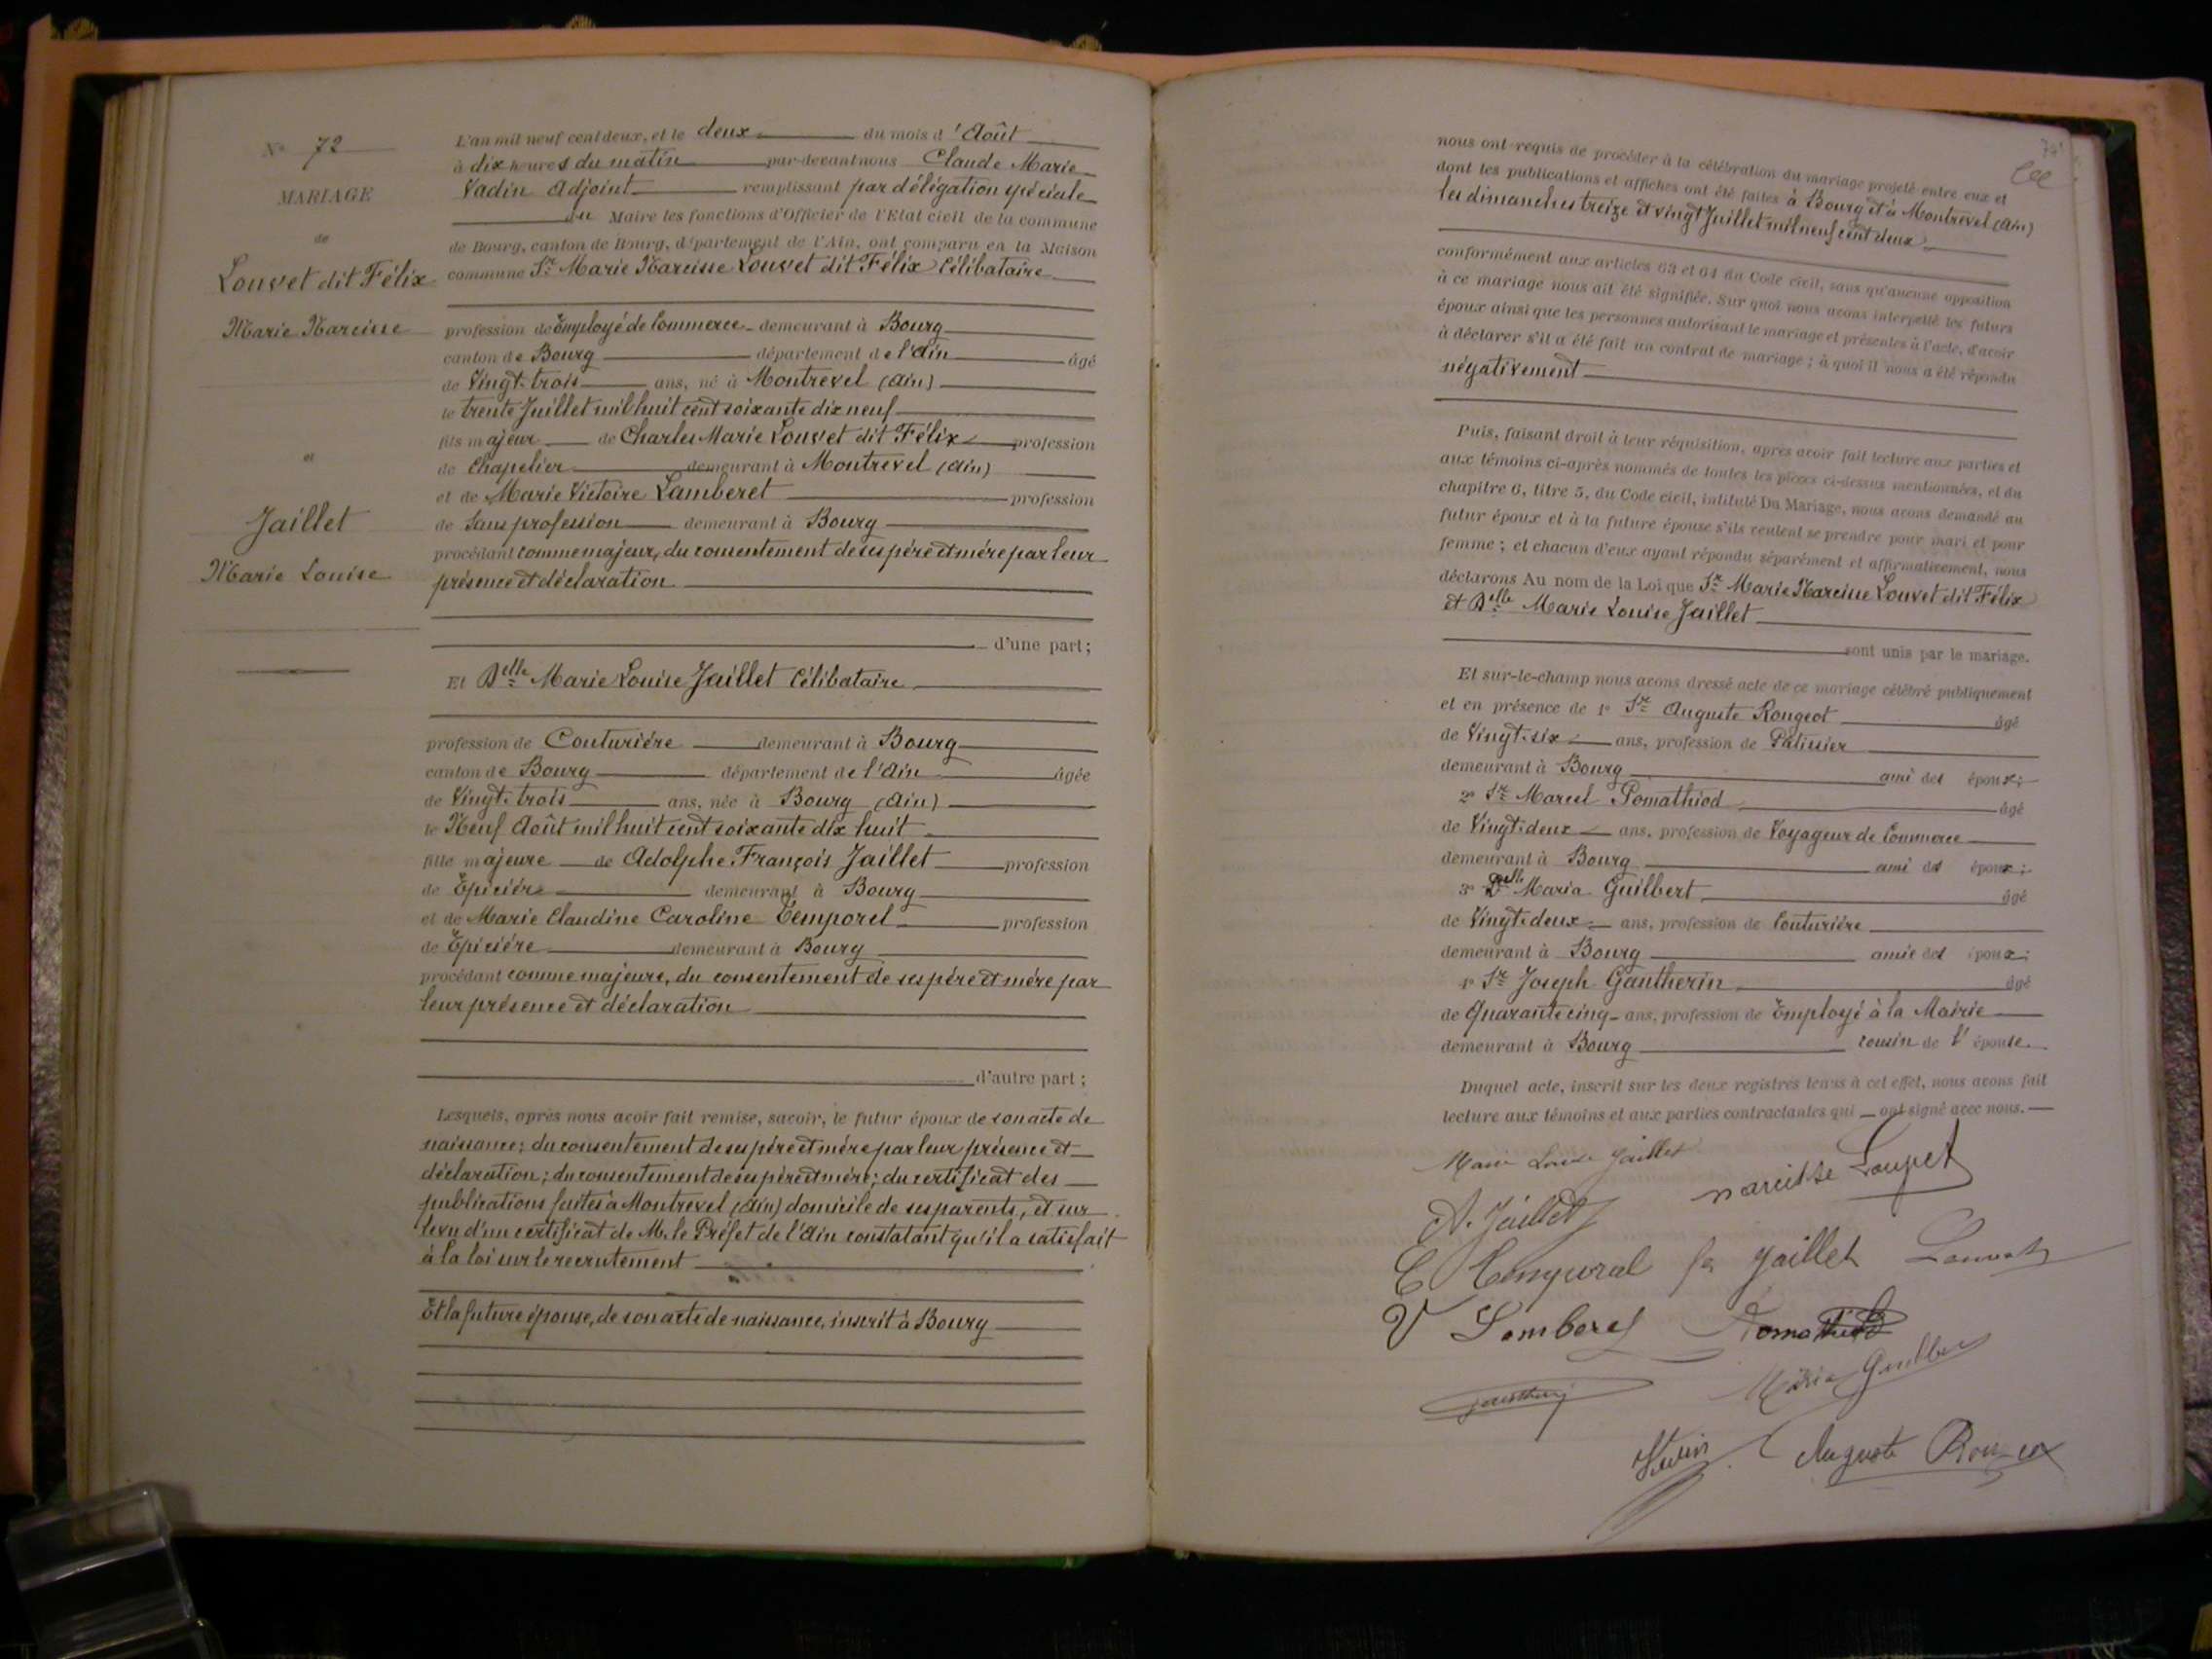 N° 72
MARIAGE
de
Louvet dit Félix
Marie Narcisse
et
Jaillet
Marie Louise
L'an mil neuf cent deux, et le deux du mois d'Août
à dix heures du matin par-devant nous Claude Marie
Vadin Adjoint remplissant par délégation spéciale
du Maire les fonctions d'Officier de l'Etat civil de la commune
de Bourg, canton de Bourg, département de l'Ain, ont comparu en la Maison
commune Sr Marie Narcisse Louvet dit Félix Célibataire
profession de Employé de Commerce demeurant à Bourg
canton de Bourg département de l'Ain âgé
de Vingt-trois ans, né à Montrevel (Ain)
le trente Juillet mil huit cent soixante dix neuf
fils majeur de Charles Marie Louvet dit Félix profession
de Chapelier demeurant à Montrevel (Ain)
et de Marie Victoire Lamberet profession
de Sans profession demeurant à Bourg
procédant comme majeur, du consentement de ses père et mère par leur
présence et déclaration
d'une part;
Et Delle Marie Louise Jaillet Célibataire
profession de Couturière demeurant à Bourg
canton de Bourg département de l'Ain âgée
de Vingt-trois ans, née à Bourg (Ain)
le Neuf Août mil huit cent soixante dix huit
fille majeure de Adolphe François Jaillet profession
de Epicière demeurant à Bourg
et de Marie Claudine Caroline Temporel profession
de Epicière demeurant à Bourg
procédant comme majeure, du consentement de ses père et mère par
leur présence et déclaration
d'autre part;
Lesquels, après nous avoir fait remise, savoir, le futur époux de son acte de
naissance; du consentement de ses père et mère par leur présence et
déclaration; du consentement de ses père et mère; du certificat des
publications faites à Montrevel (Ain) domicile de ses parents, et sur
le vu d'un certificat de M. le Préfet de l'Ain constatant qu'il a satisfait
à la loi sur le recrutement
Et la future épouse, de son acte de naissance, inscrit à Bourg
nous ont requis de procéder à la célébration du mariage projeté entre eux et
dont les publications et affiches ont été faites à Bourg et à Montrevel (Ain)
les dimanches treize et vingt Juillet mil neuf cent deux
conformément aux articles 63 et 64 du Code civil, sans qu'aucune opposition
à ce mariage nous ait été signifiée. Sur quoi nous avons interpellé les futurs
époux ainsi que les personnes autorisant le mariage et présentes à l'acte, d'avoir
à déclarer s'il a été fait un contrat de mariage; à quoi il nous a été répondu
négativement
Puis, faisant droit à leur réquisition, après avoir fait lecture aux parties et
aux témoins ci-après nommés de toutes les pièces ci-dessus mentionnées, et du
chapitre 6, titre 5, du Code civil, intitulé Du Mariage, nous avons demandé au
futur époux et à la future épouse s'ils veulent se prendre pour mari et pour
femme; et chacun d'eux ayant répondu séparément et affirmativement, nous
déclarons Au nom de la Loi que Sr Marie Narcisse Louvet dit Félix
et Delle Marie Louise Jaillet
sont unis par le mariage.
Et sur-le-champ nous avons dressé acte de ce mariage célébré publiquement
et en présence de 1° Sr Auguste Rongeot âgé
de Vingt-six ans, profession de Pâtissier
demeurant à Bourg ami des époux;
2° Sr Marcel Pomathiod âgé
de Vingt-deux ans, profession de Voyageur de Commerce
demeurant à Bourg ami des époux;
3° Delle Maria Guilbert âgé
de Vingt-deux ans, profession de Couturière
demeurant à Bourg amie des époux;
4° Sr Joseph Gautherin âgé
de Quarante cinq ans, profession de Employé à la Mairie
demeurant à Bourg cousin de l'épouse.
Duquel acte, inscrit sur les deux registres tenus à cet effet, nous avons fait
lecture aux témoins et aux parties contractantes qui ont signé avec nous.
Marie Louise Jaillet
narcisse Louvet
A. Jaillet
C Temporal fe Jaillet Louvet
V Lamberet Pomathiod
Maria Guilbert
Gautherin
Vadin
Auguste